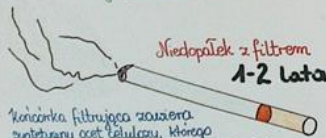 Niedopałek z filtrem
1-2 Lata
Końcówka filtrująca zawiera
syntetyczny octan celulozy, którego